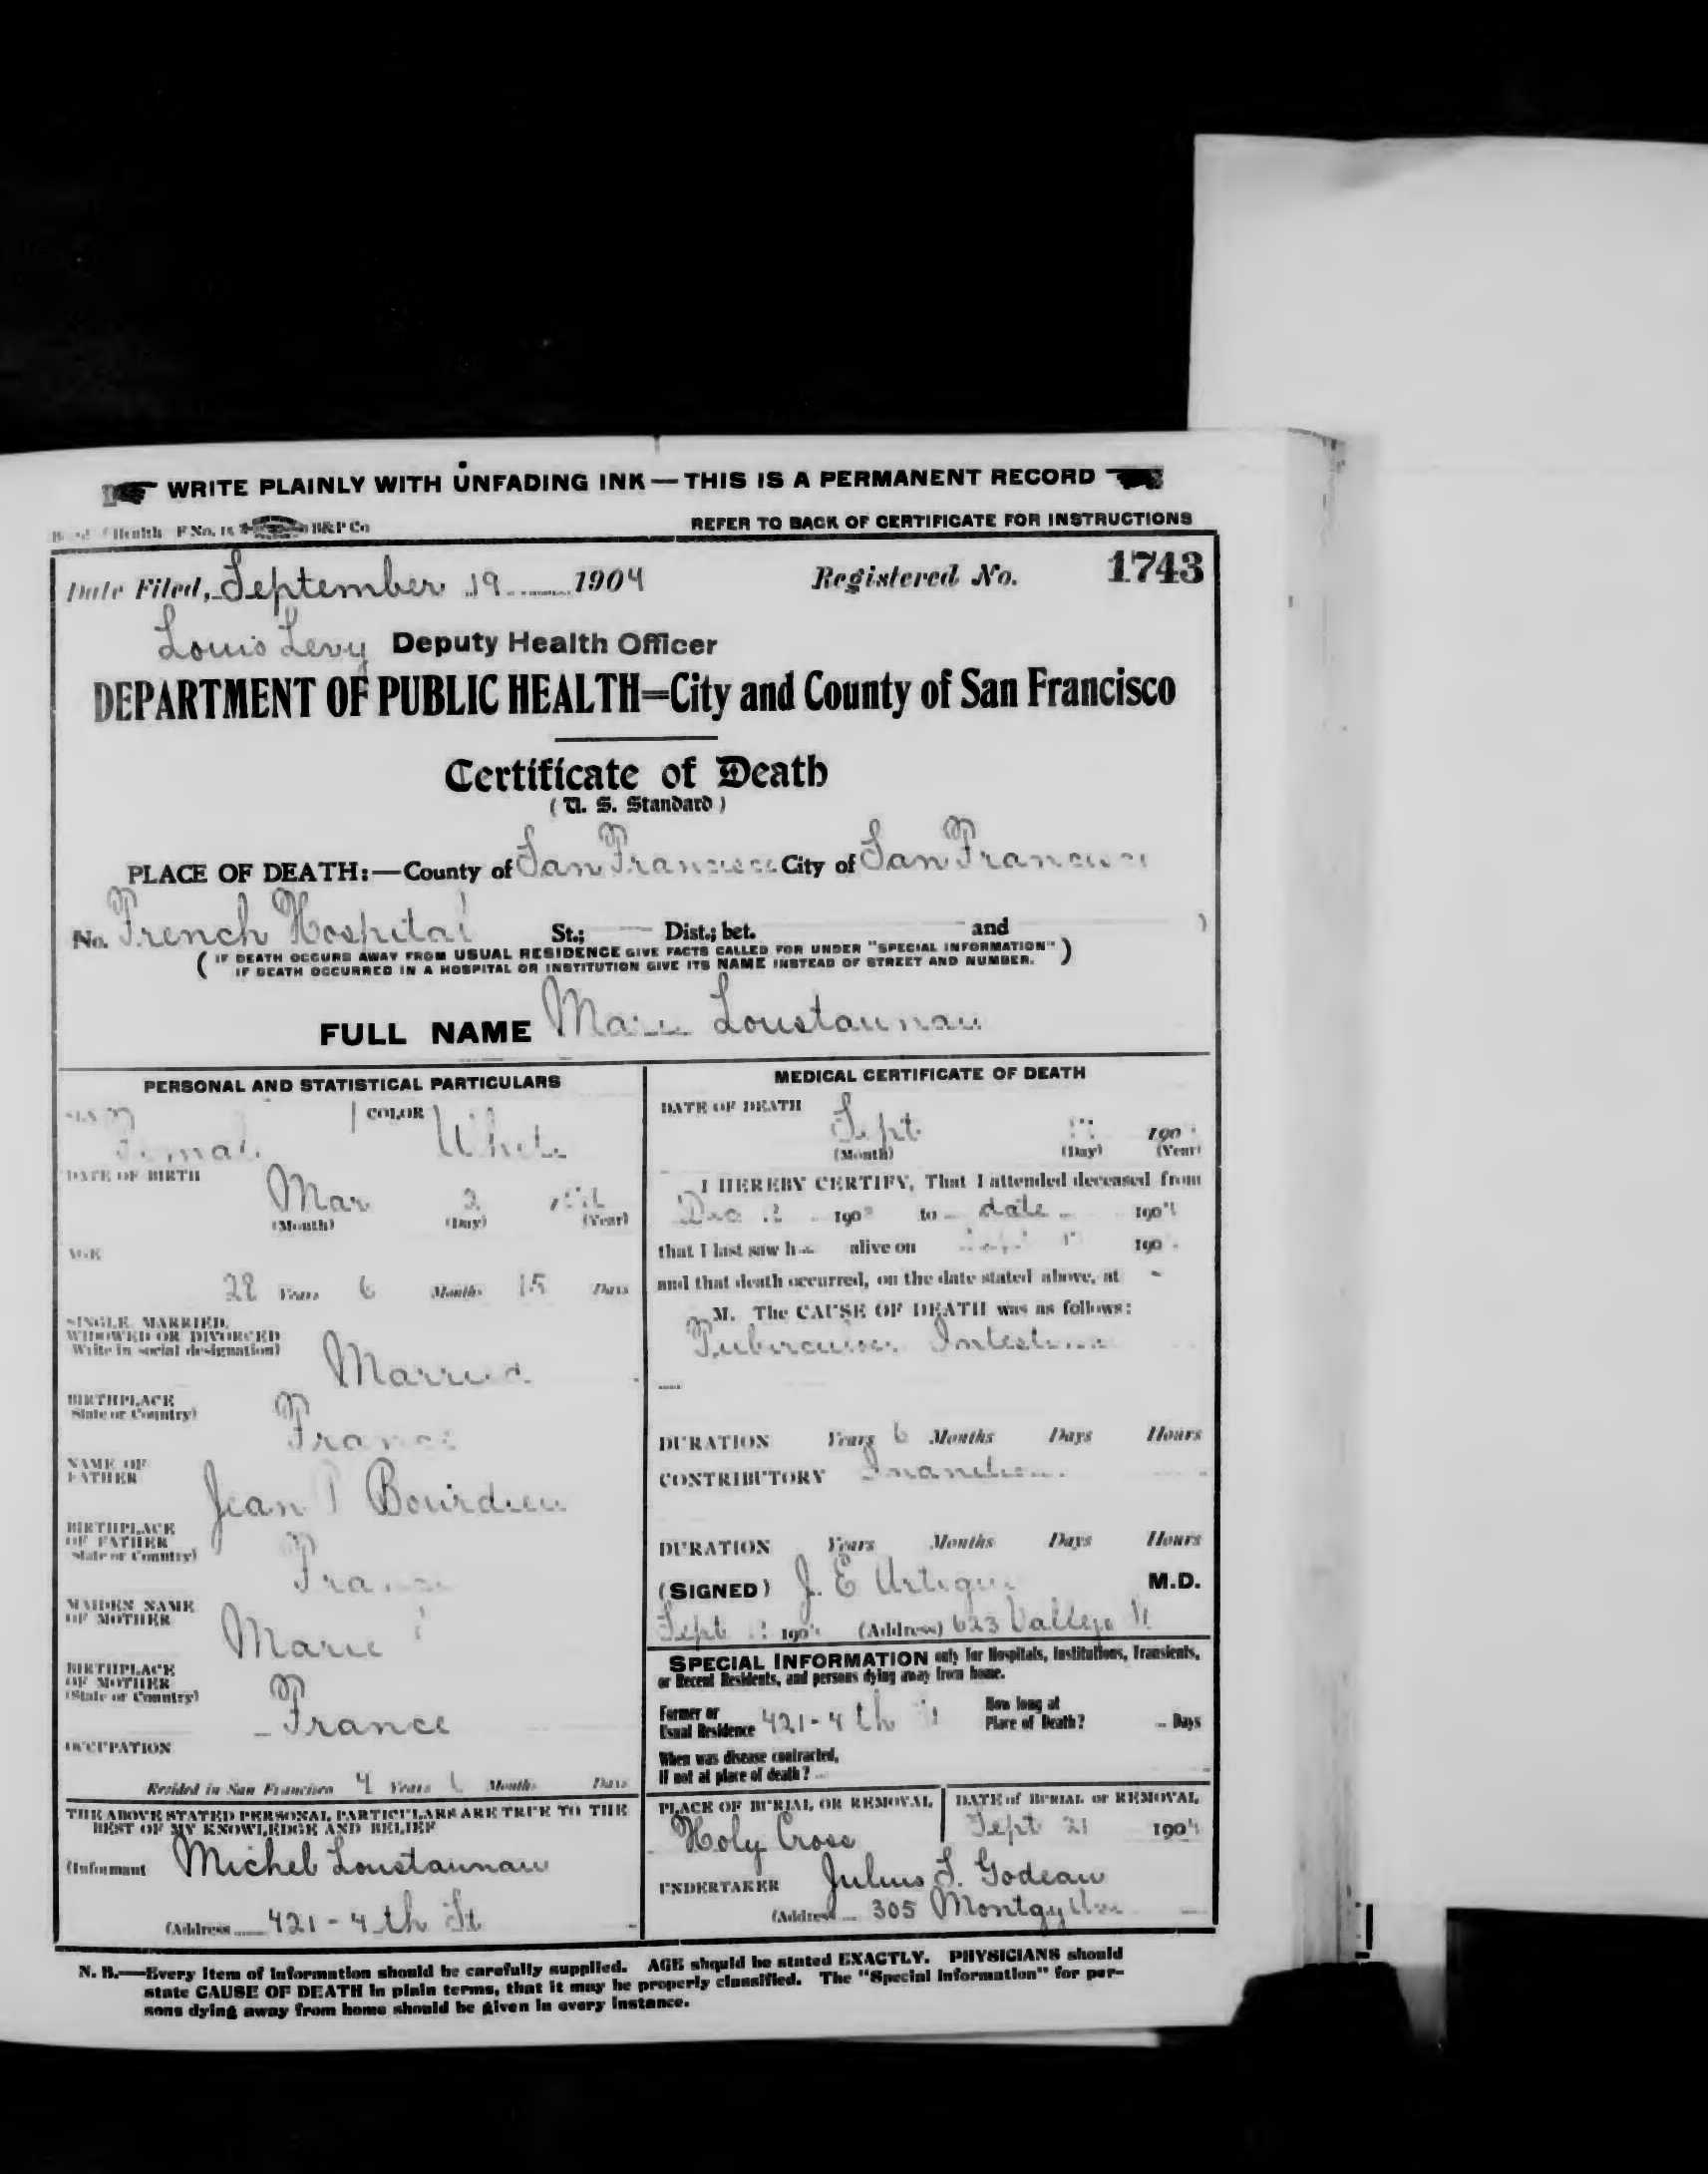 WRITE PLAINLY WITH UNFADING INK — THIS IS A PERMANENT RECORD
Health F No. 15 B&P Co
REFER TO BACK OF CERTIFICATE FOR INSTRUCTIONS
Date Filed, September 19 1904 Registered No. 1743
Louis Levy Deputy Health Officer
DEPARTMENT OF PUBLIC HEALTH=City and County of San Francisco
Certificate of Death
(U. S. Standard)
PLACE OF DEATH:—County of San Francisco City of San Francisco
No. French Hospital St.; Dist.; bet. and )
( IF DEATH OCCURS AWAY FROM USUAL RESIDENCE GIVE FACTS CALLED FOR UNDER "SPECIAL INFORMATION" )
IF DEATH OCCURRED IN A HOSPITAL OR INSTITUTION GIVE ITS NAME INSTEAD OF STREET AND NUMBER.
FULL NAME Marie Loustaunau
PERSONAL AND STATISTICAL PARTICULARS
SEX COLOR
Female White
DATE OF BIRTH
Mar 2
(Month) (Day) (Year)
AGE
28 Years 6 Months 15 Days
SINGLE, MARRIED,
WIDOWED OR DIVORCED
(Write in social designation)
Married
BIRTHPLACE
(State or Country)
France
NAME OF
FATHER
Jean P Bourdieu
BIRTHPLACE
OF FATHER
(State or Country)
France
MAIDEN NAME
OF MOTHER
Marie
BIRTHPLACE
OF MOTHER
(State or Country)
France
OCCUPATION
Resided in San Francisco 4 Years Months Days
THE ABOVE STATED PERSONAL PARTICULARS ARE TRUE TO THE
BEST OF MY KNOWLEDGE AND BELIEF
(Informant Michel Loustaunau
(Address 421-4th St
MEDICAL CERTIFICATE OF DEATH
DATE OF DEATH
Sept 190
(Month) (Day) (Year)
I HEREBY CERTIFY, That I attended deceased from
Dec 190 to date 1904
that I last saw h alive on Sept 190
and that death occurred, on the date stated above, at
M. The CAUSE OF DEATH was as follows:
Tuberculosis Intestinal
DURATION Years 6 Months Days Hours
CONTRIBUTORY Inanition
DURATION Years Months Days Hours
(SIGNED) J. E Artigues M.D.
Sept 190 (Address) 623 Vallejo St
SPECIAL INFORMATION only for Hospitals, Institutions, Transients,
or Recent Residents, and persons dying away from home.
Former or
Usual Residence 421-4th St
How long at
Place of Death? Days
When was disease contracted,
If not at place of death?
PLACE OF BURIAL OR REMOVAL
Holy Cross
DATE of BURIAL or REMOVAL
Sept 21 1904
UNDERTAKER Julius S. Godeau
(Address 305 Montgy Ave
N. B.—Every item of information should be carefully supplied. AGE should be stated EXACTLY. PHYSICIANS should
state CAUSE OF DEATH in plain terms, that it may be properly classified. The "Special Information" for per-
sons dying away from home should be given in every instance.